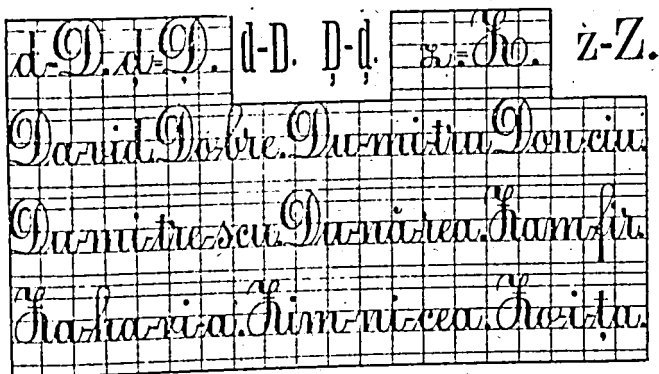 d-D. d̦=D̦. d-D. D̦-d̦. z=Z. ż-Z.
Da-vid. Do-bre. Du-mi-tra Don-ciu.
Du-mi-tre-scu. Du-nă-rea. Zam-fir.
Za-ha-ri-a. Zim-ni-cea. Zo-i-ța.